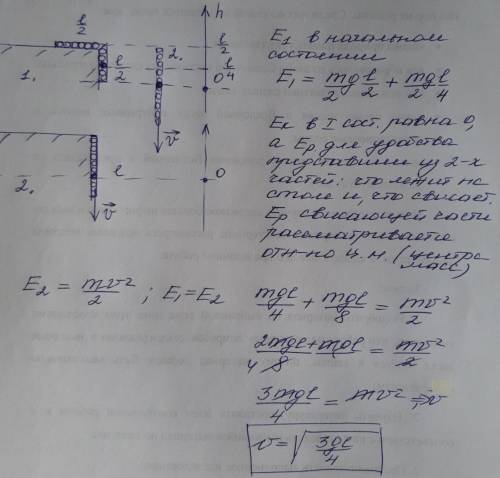 l/2
h
1.
l/2
2.
l/2
l/4
0
v⃗
2.
l
0
v⃗
E₁ в начальном
состоянии
E₁ = mg/2 l/2 + mg/2 l/4
Eк в I сост. равна 0,
а Eр для удобства
представим из 2-х
частей: что лежит на
столе и, что свисает.
Eр свисающей части
рассматривается
отн-но ц.м. (центра
масс)
E₂ = mv²/2 ; E₁=E₂
mgl/4 + mgl/8 = mv²/2
2mgl+mgl/8 = mv²/2
4
3mgl/4 = mv² ⇒ v
v = √(3gl/4)